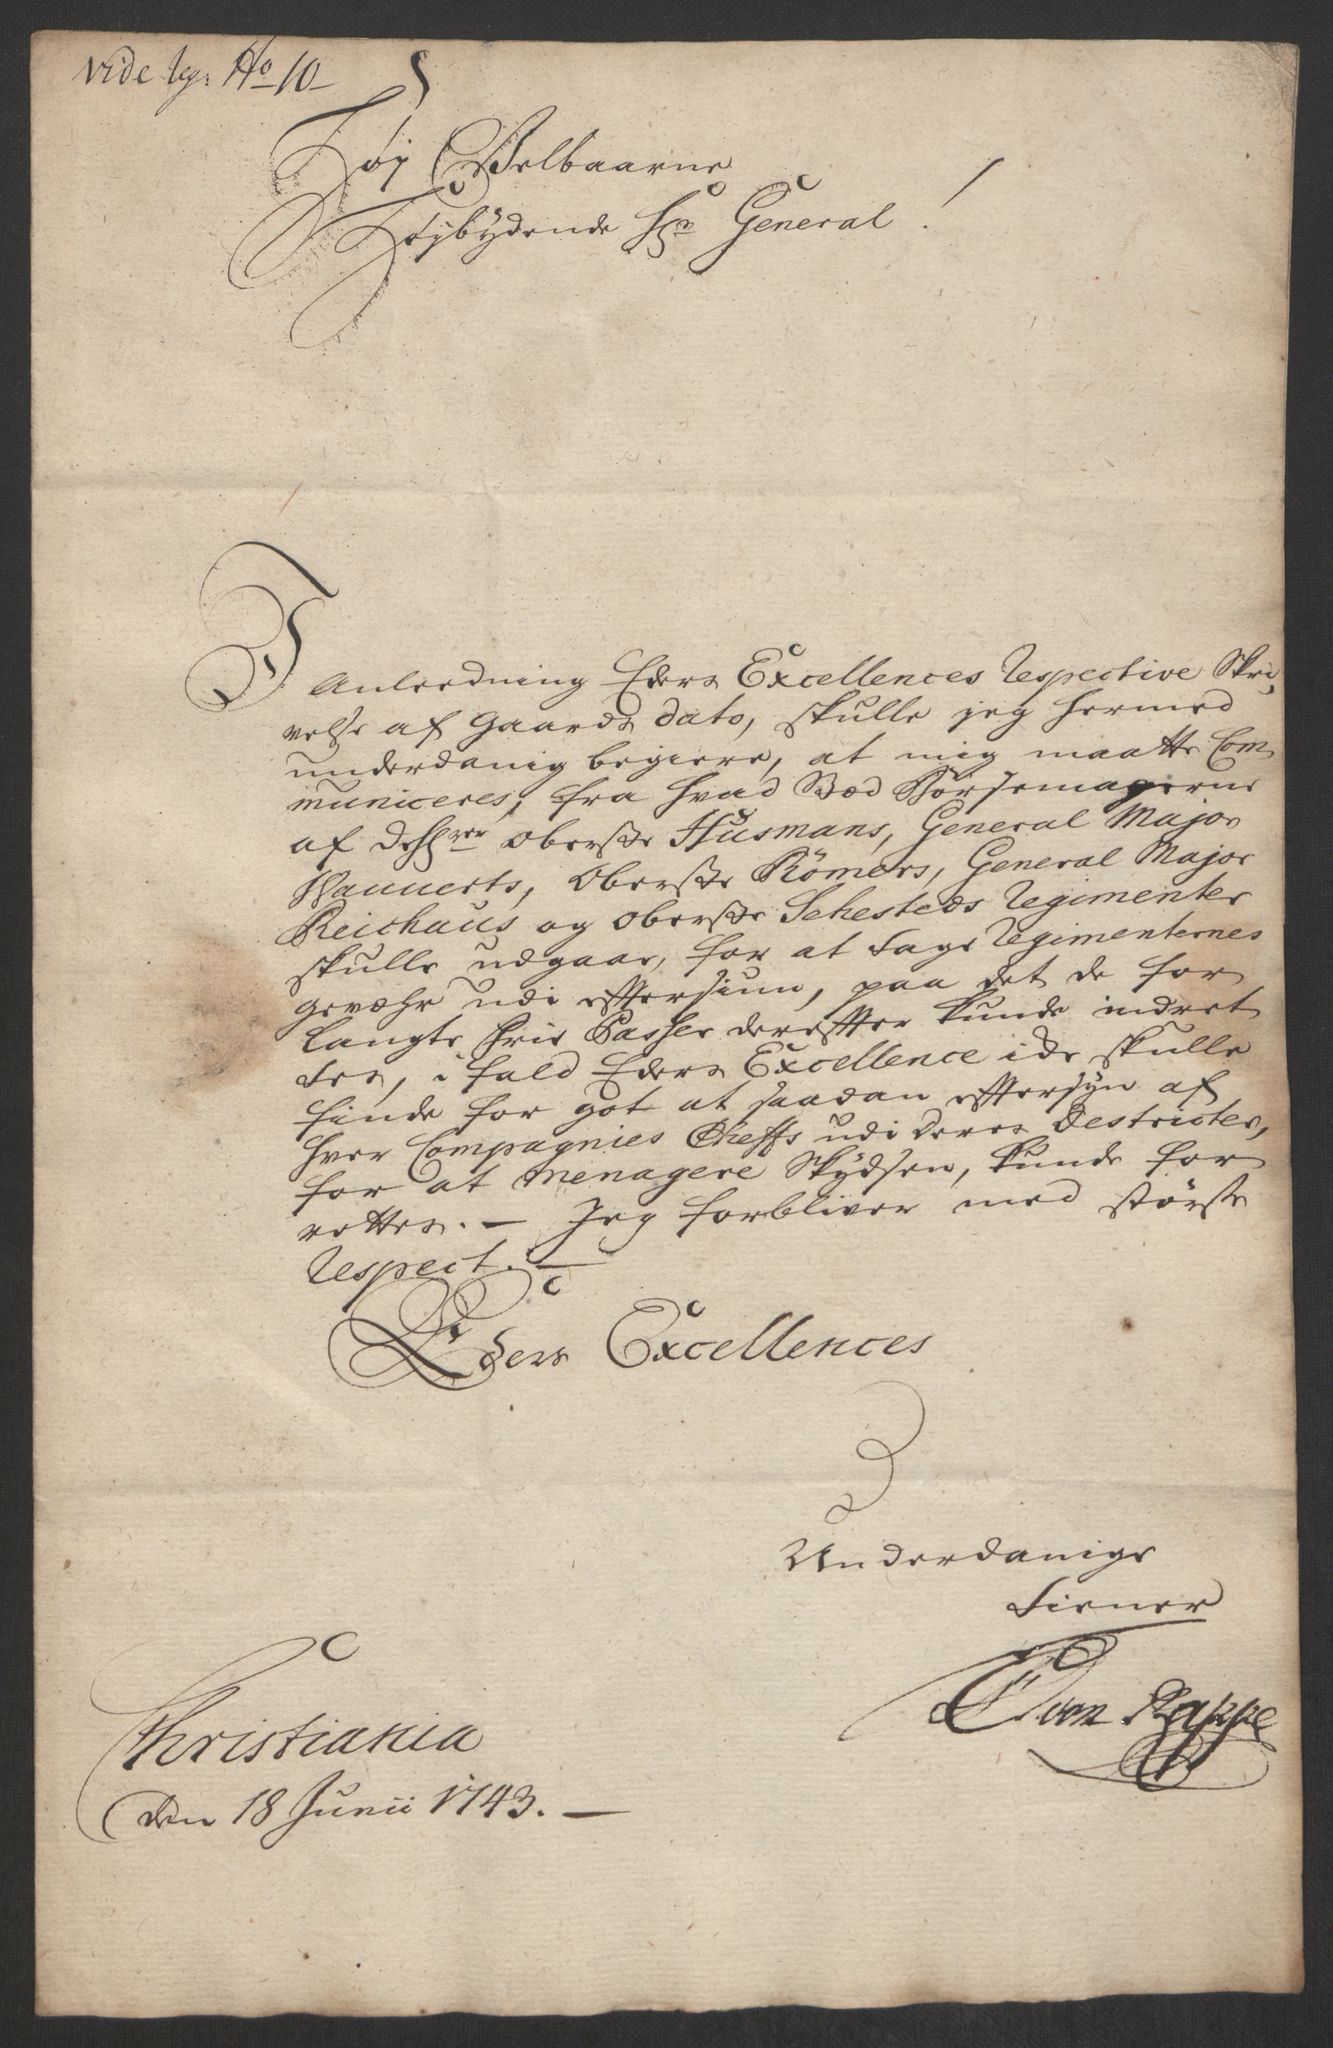 vide lg: No 10
Høy Velbaarne
Høybydende Hr General!
I Anleedning Eders Excellences respective Skri
velse af Gaards dato, skulle jeg hermed
underdanig begiere, at mig maatte Com
municeres, fra hvad Stæd Börsemagerne
af de Hrer Oberste Husmans, General Major
Oberste Römers, General Major
Reichaus og Oberste Sehesteds Regimenter
skulle udgaae, for at tage Regimenternes
gevæhr udi eftersiun, paa det de for
langte frie Passer derefter kunde indret
tes, i fald Eders Excellence ide skulle
finde for got at saadan eftersyn af
hver Compagnies Cheffs udi deres Destricter,
for at menagere Skydsen, kunde for
rettes. – Jeg forbliver med störste
respect. –
Eders Excellences
Underdanige
tiener
von Rappe
Christiania
den 18 Junii 1743. –